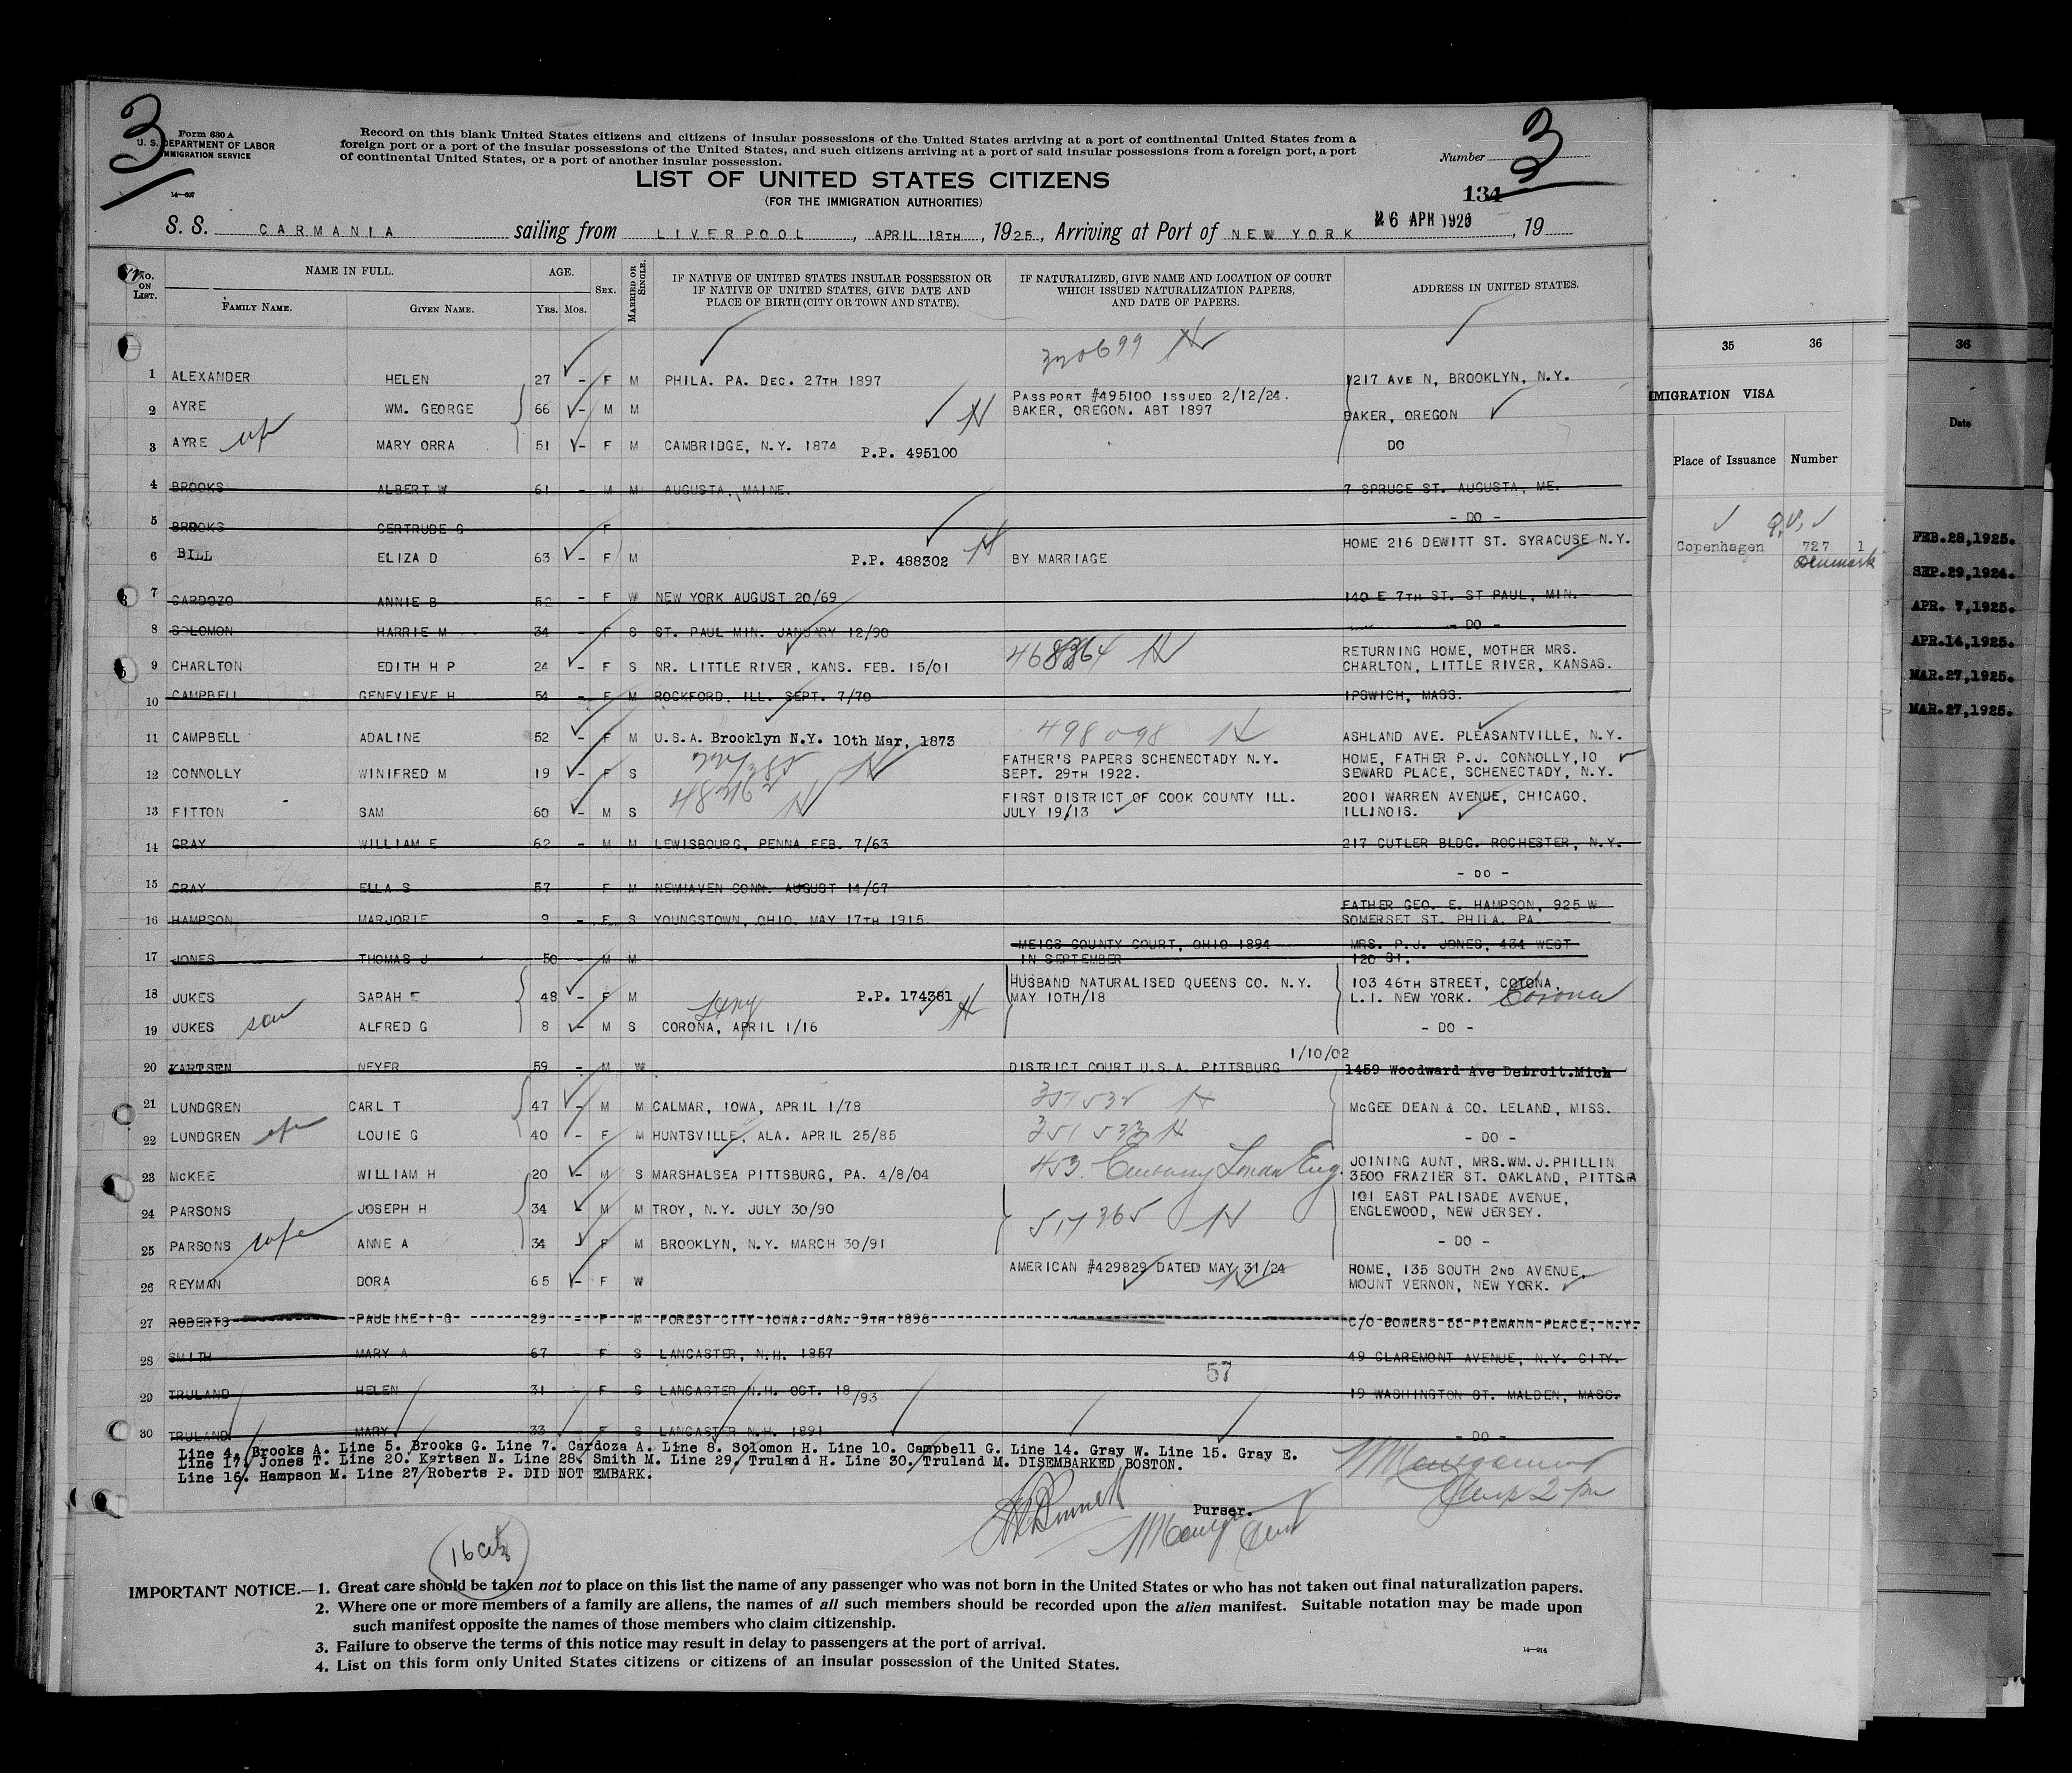 3
3
Form 630 A
U. S. DEPARTMENT OF LABOR
IMMIGRATION SERVICE
Record on this blank United States citizens and citizens of insular possessions of the United States arriving at a port of continental United States from a
foreign port or a port of the insular possessions of the United States, and such citizens arriving at a port of said insular possessions from a foreign port, a port
of continental United States, or a port of another insular possession.
Number
134
LIST OF UNITED STATES CITIZENS
(FOR THE IMMIGRATION AUTHORITIES)
S. S. CARMANIA sailing from LIVERPOOL, APRIL 18TH, 1925, Arriving at Port of NEW YORK 26 APR 1925, 19
No. ON LIST. NAME IN FULL. FAMILY NAME. GIVEN NAME. AGE. YRS. MOS. SEX. MARRIED OR SINGLE.
IF NATIVE OF UNITED STATES INSULAR POSSESSION OR IF NATIVE OF UNITED STATES, GIVE DATE AND PLACE OF BIRTH (CITY OR TOWN AND STATE).
IF NATURALIZED, GIVE NAME AND LOCATION OF COURT WHICH ISSUED NATURALIZATION PAPERS, AND DATE OF PAPERS.
ADDRESS IN UNITED STATES.
320699
1 ALEXANDER HELEN 27 - F M PHILA. PA. DEC. 27TH 1897 1217 AVE N, BROOKLYN, N.Y.
2 AYRE WM. GEORGE 66 - M M PASSPORT #495100 ISSUED 2/12/24. BAKER, OREGON. ABT 1897 BAKER, OREGON
3 AYRE MARY ORRA 51 - F M CAMBRIDGE, N.Y. 1874 P.P. 495100 DO
4 BROOKS ALBERT W 61 - M M AUGUSTA, MAINE. 7 SPRUCE ST. AUGUSTA, ME.
5 BROOKS GERTRUDE G F - DO -
6 BILL ELIZA D 63 - F M P.P. 488302 BY MARRIAGE HOME 216 DEWITT ST. SYRACUSE N.Y.
7 CARDOZO ANNIE B 52 - F W NEW YORK AUGUST 20/69 140 E 7TH ST. ST PAUL, MIN.
8 SOLOMON HARRIE M 34 - F S ST. PAUL MIN. JANUARY 12/90 - DO -
9 CHARLTON EDITH H P 24 - F S NR. LITTLE RIVER, KANS. FEB. 15/01 RETURNING HOME, MOTHER MRS. CHARLTON, LITTLE RIVER, KANSAS.
10 CAMPBELL GENEVIEVE H 54 - F M ROCKFORD, ILL. SEPT. 7/70 IPSWICH, MASS.
11 CAMPBELL ADALINE 52 - F M U.S.A. Brooklyn N.Y. 10th Mar, 1873 498098 ASHLAND AVE. PLEASANTVILLE, N.Y.
12 CONNOLLY WINIFRED M 19 - F S FATHER'S PAPERS SCHENECTADY N.Y. SEPT. 29TH 1922. HOME, FATHER P.J. CONNOLLY, 10 SEWARD PLACE, SCHENECTADY, N.Y.
13 FITTON SAM 60 - M S FIRST DISTRICT OF COOK COUNTY ILL. JULY 19/13 2001 WARREN AVENUE, CHICAGO, ILLINOIS.
14 GRAY WILLIAM E 62 - M M LEWISBOURG, PENNA FEB. 7/63 217 CUTLER BLDG. ROCHESTER, N.Y.
15 GRAY ELLA S 57 F M NEWHAVEN CONN. AUGUST 14/67 - DO -
16 HAMPSON MARJORIE 9 - F S YOUNGSTOWN, OHIO. MAY 17TH 1915. FATHER GEO. E. HAMPSON, 925 W SOMERSET ST. PHILA. PA.
17 JONES THOMAS J 50 - M M MEIGS COUNTY COURT, OHIO 1894 IN SEPTEMBER MRS. P.J. JONES, 434 WEST 120 ST.
18 JUKES SARAH E 48 - F M P.P. 174381 HUSBAND NATURALISED QUEENS CO. N.Y. MAY 10TH/18 103 46TH STREET, COTONA, L.I. NEW YORK. Corona
19 JUKES son ALFRED G 8 - M S CORONA, APRIL 1/16 - DO -
20 KARTSEN NEYER 59 - M W DISTRICT COURT U.S.A. PITTSBURG 1/10/02 1459 Woodward Ave Detroit.Mich
21 LUNDGREN CARL T 47 - M M CALMAR, IOWA, APRIL 1/78 McGEE DEAN & CO. LELAND, MISS.
22 LUNDGREN LOUIE G 40 - F M HUNTSVILLE, ALA. APRIL 25/85 - DO -
23 McKEE WILLIAM H 20 - M S MARSHALSEA PITTSBURG, PA. 4/8/04 453. Embassy London Eng. JOINING AUNT, MRS.WM.J.PHILLIN 3500 FRAZIER ST. OAKLAND, PITTS.PA
24 PARSONS JOSEPH H 34 M M TROY, N.Y. JULY 30/90 517365 101 EAST PALISADE AVENUE, ENGLEWOOD, NEW JERSEY.
25 PARSONS wife ANNE A 34 F M BROOKLYN, N.Y. MARCH 30/91 - DO -
26 REYMAN DORA 65 - F W AMERICAN #429829 DATED MAY 31/24 ROME, 135 SOUTH 2ND AVENUE. MOUNT VERNON, NEW YORK.
27 ROBERTS PAULINE I G 29 - F M FOREST CITY IOWA. JAN. 9TH 1896 C/O BOWERS 55 TIEMANN PLACE, N.Y.
28 SMITH MARY A 67 - F S LANCASTER, N.H. 1857 49 CLAREMONT AVENUE, N.Y. CITY.
57
29 TRULAND HELEN 31 F S LANCASTER N.H. OCT. 18/93 19 WASHINGTON ST. MALDEN, MASS.
30 TRULAND MARY 33 F S LANCASTER N.H. 1891 - DO -
Line 4. Brooks A. Line 5. Brooks G. Line 7. Cardoza A. Line 8. Solomon H. Line 10. Campbell G. Line 14. Gray W. Line 15. Gray E.
Line 17. Jones T. Line 20. Kartsen N. Line 28. Smith M. Line 29. Truland H. Line 30. Truland M. DISEMBARKED BOSTON.
Line 16. Hampson M. Line 27 Roberts P. DID NOT EMBARK.
Purser.
IMPORTANT NOTICE.—1. Great care should be taken not to place on this list the name of any passenger who was not born in the United States or who has not taken out final naturalization papers.
2. Where one or more members of a family are aliens, the names of all such members should be recorded upon the alien manifest. Suitable notation may be made upon
such manifest opposite the names of those members who claim citizenship.
3. Failure to observe the terms of this notice may result in delay to passengers at the port of arrival.
4. List on this form only United States citizens or citizens of an insular possession of the United States.
14—214
35 36
IMMIGRATION VISA
Place of Issuance Number
Copenhagen 727 1
Denmark
36
Date
FEB.28,1925.
SEP.29,1924.
APR. 7,1925.
APR.14,1925.
MAR.27,1925.
MAR.27,1925.